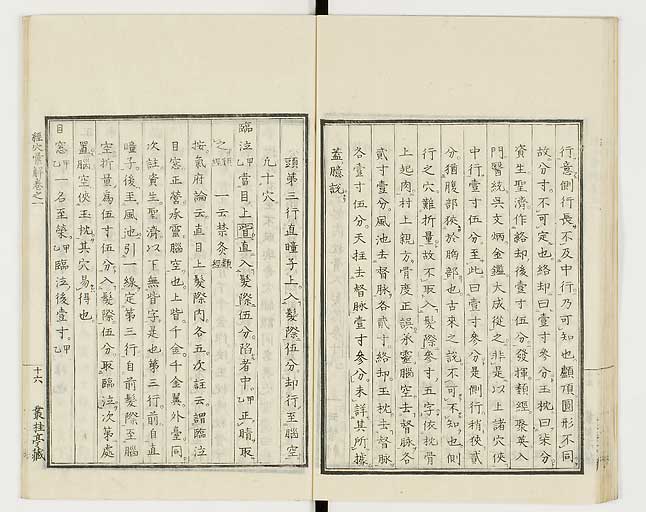 行意側行長不及中行乃可知也顱頂圓形不同
故分寸不可定也絡却曰壹寸參分玉枕曰柒分
資生聖濟作絡却後壹寸伍分發揮類經聚英入
門醫統吳文炳金鑑大成從之非是以上諸穴俠
中行壹寸伍分至此曰壹寸參分是側行稍俠貳
分猶腹部狹於胸部也古來之說不可不知也側
行之穴難折量故不取入髮際參寸五字依枕骨
上起肉村上親方骨度正誤承靈腦空去督脉各
貳寸壹分風池去督脉各貳寸絡却玉枕去督脉
各壹寸伍分天柱去督脉壹寸參分未詳其所據
蓋臆說
頭第三行直瞳子上入髮際伍分却行至腦空
凢十穴
臨泣甲乙當目上眥直入髮際伍分陷者中甲乙正睛取
之類經一云禁灸類經
按氣府論云直目上髮際內各五次註云謂臨泣
目窓正營承靈腦空也上眥千金千金翼外臺同
次註資生聖濟以下無眥字是也第三行前自直
瞳子後王風池引一線定第三行自前髮際至腦
空折量爲伍寸伍分入髮際伍分取臨泣次第處
置腦空俠玉枕其穴易得也
目窓甲乙一名至榮甲乙臨泣後壹寸甲乙
經穴彙解卷之一
十六
叢桂亭藏